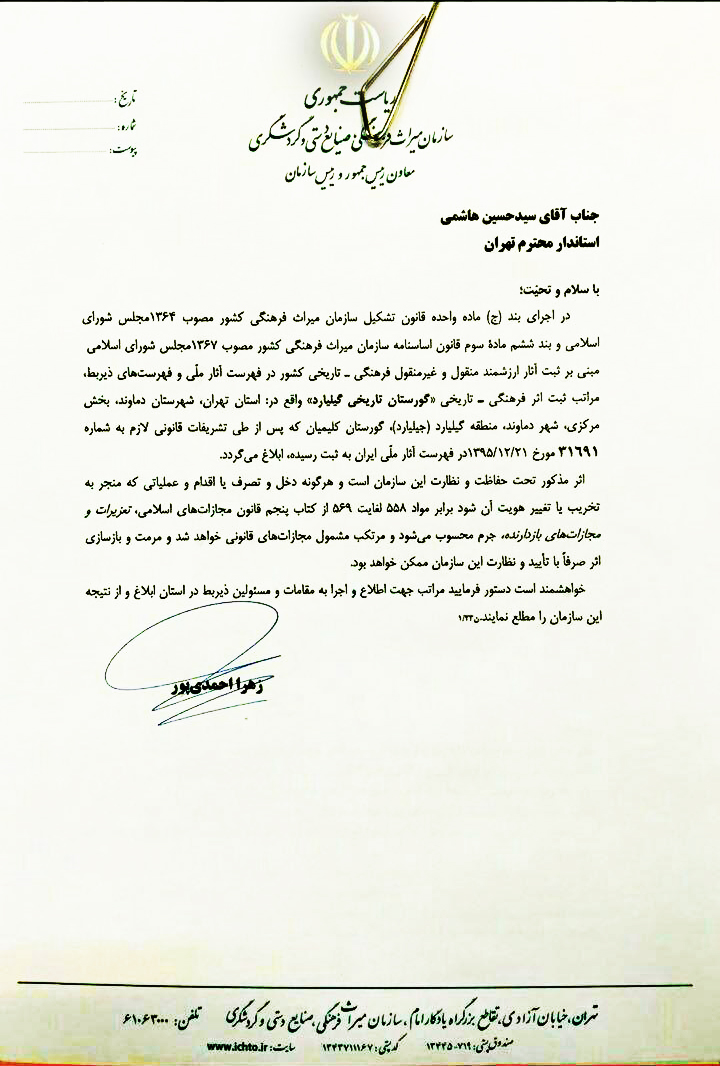 ریاست جمهوری
سازمان میراث فرهنگی، صنایع دستی و گردشگری
معاون رییس جمهور و رییس سازمان
تاریخ:
شماره:
پیوست:
جناب آقای سیدحسین هاشمی
استاندار محترم تهران
با سلام و تحیّت؛
در اجرای بند (ج) ماده واحده قانون تشکیل سازمان میراث فرهنگی کشور مصوب ۱۳۶۴مجلس شورای
اسلامی و بند ششم مادهٔ سوم قانون اساسنامه سازمان میراث فرهنگی کشور مصوب ۱۳۶۷مجلس شورای اسلامی
مبنی بر ثبت آثار ارزشمند منقول و غیرمنقول فرهنگی ـ تاریخی کشور در فهرست آثار ملّی و فهرست‌های ذیربط،
مراتب ثبت اثر فرهنگی ـ تاریخی «گورستان تاریخی گیلیارد» واقع در: استان تهران، شهرستان دماوند، بخش
مرکزی، شهر دماوند، منطقه گیلیارد (جیلیارد)، گورستان کلیمیان که پس از طی تشریفات قانونی لازم به شماره
۳۱۶۹۱ مورخ ۱۳۹۵/۱۲/۲۱در فهرست آثار ملّی ایران به ثبت رسیده، ابلاغ می‌گردد.
اثر مذکور تحت حفاظت و نظارت این سازمان است و هرگونه دخل و تصرف یا اقدام و عملیاتی که منجر به
تخریب یا تغییر هویت آن شود برابر مواد ۵۵۸ لغایت ۵۶۹ از کتاب پنجم قانون مجازات‌های اسلامی، تعزیرات و
مجازات‌های بازدارنده، جرم محسوب می‌شود و مرتکب مشمول مجازات‌های قانونی خواهد شد و مرمت و بازسازی
اثر صرفاً با تأیید و نظارت این سازمان ممکن خواهد بود.
خواهشمند است دستور فرمایید مراتب جهت اطلاع و اجرا به مقامات و مسئولین ذیربط در استان ابلاغ و از نتیجه
این سازمان را مطلع نمایند.
زهرا احمدی‌پور
تهران، خیابان آزادی، تقاطع بزرگراه یادگار امام، سازمان میراث فرهنگی، صنایع دستی و گردشگری تلفن: ۶۱۰۶۳۰۰۰
صندوق پستی: ۷۱۹-۱۳۴۴۵ کدپستی: ۱۳۴۳۷۱۱۱۶۷ سایت: www.ichto.ir